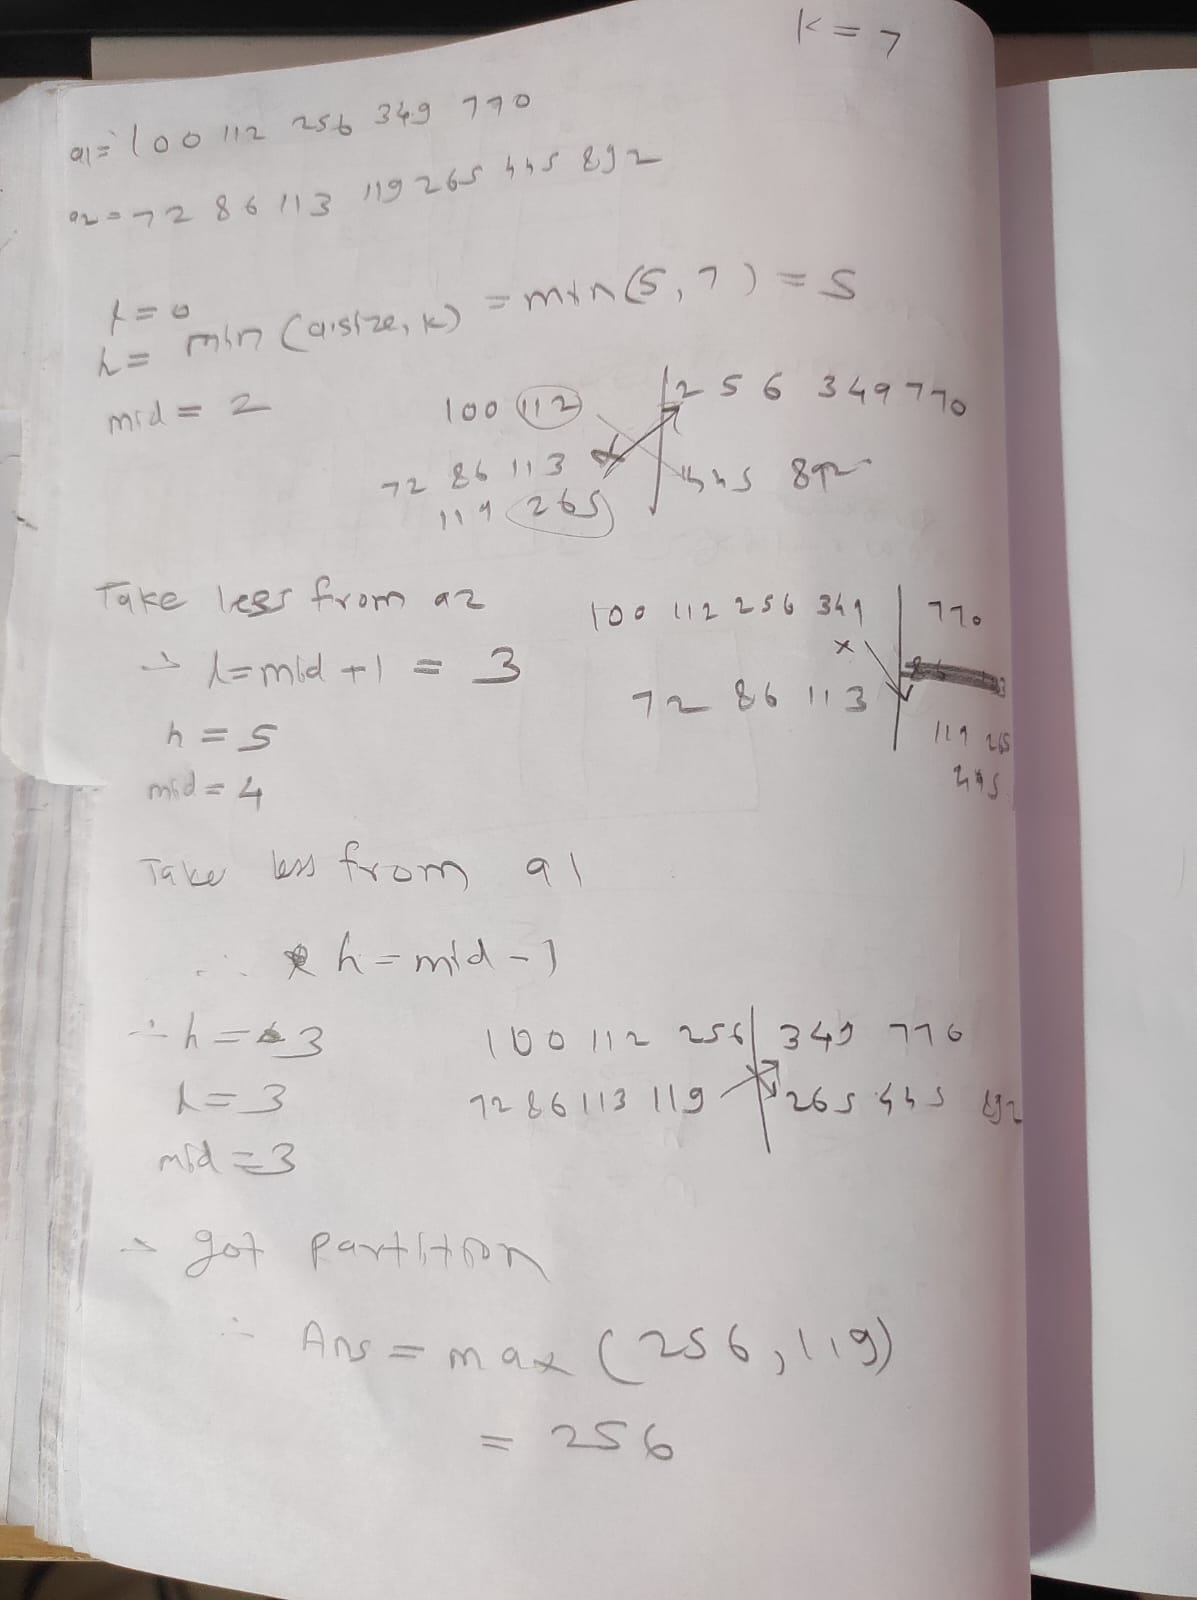 k = 7
a1 = 100 112 256 349 770
a2 = 72 86 113 119 265 445 892
l = 0
h = min (a.size, k) = min (5, 7) = 5
mid = 2
100 112 | 256 349 770
72 86 113
119 265 | 445 892
Take less from a2
∴ l = mid + 1 = 3
h = 5
mid = 4
100 112 256 349 | 770
x
72 86 113 | 119 265
445
Take less from a1
∴ h = mid - 1
∴ h = 3
l = 3
mid = 3
100 112 256 | 349 770
72 86 113 119 | 265 445 892
∴ got partition
∴ Ans = max (256, 119)
= 256